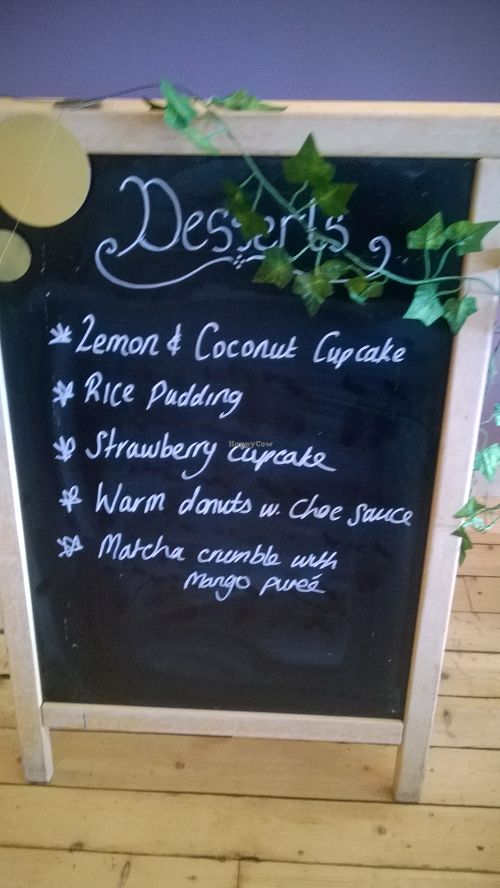 Desserts
* Lemon & Coconut Cupcake
* Rice Pudding
* Strawberry Cupcake
HappyCow
* Warm donuts w. choc sauce
* Matcha crumble with
Mango pureé